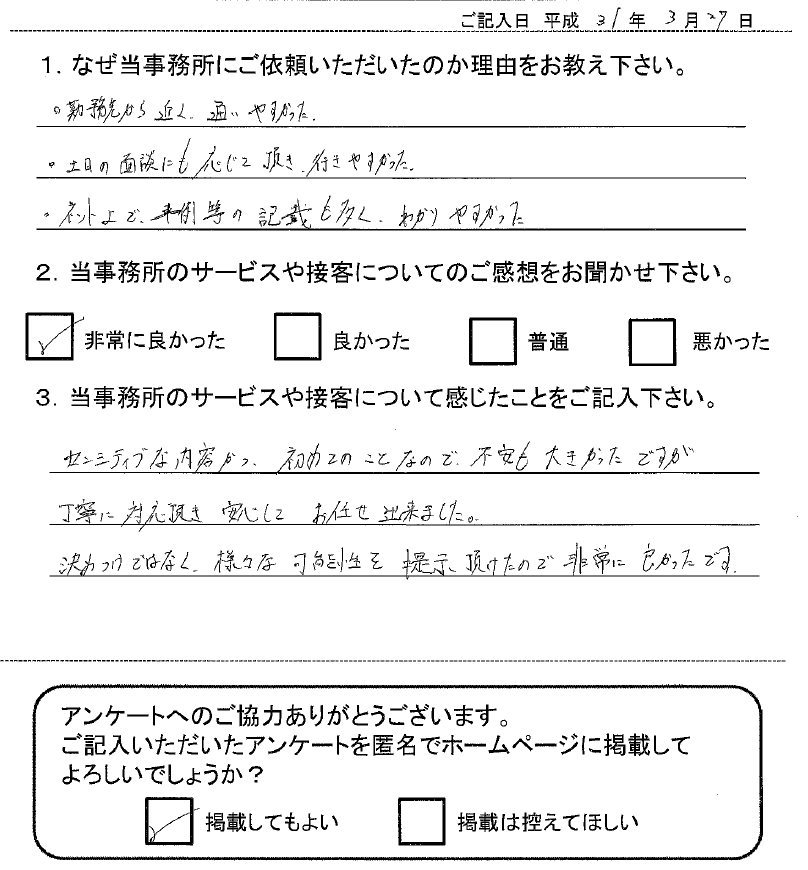 ご記入日 平成 31年 3月27日
1. なぜ当事務所にご依頼いただいたのか理由をお教え下さい。
。勤務先から近く、通いやすかった.
。土日の面談にも応じて頂き、行きやすかった.
・ネット上で、事例等の記載も多く、わかりやすかった
2. 当事務所のサービスや接客についてのご感想をお聞かせ下さい。
非常に良かった 良かった 普通 悪かった
3. 当事務所のサービスや接客について感じたことをご記入下さい。
センシティブな内容かつ、初めてのことなので、不安も大きかったですが
丁寧に対応頂き安心してお任せ出来ました。
決めつけではなく、様々な可能性を提示頂けたので非常に良かったです.
アンケートへのご協力ありがとうございます。
ご記入いただいたアンケートを匿名でホームページに掲載して
よろしいでしょうか?
掲載してもよい 掲載は控えてほしい